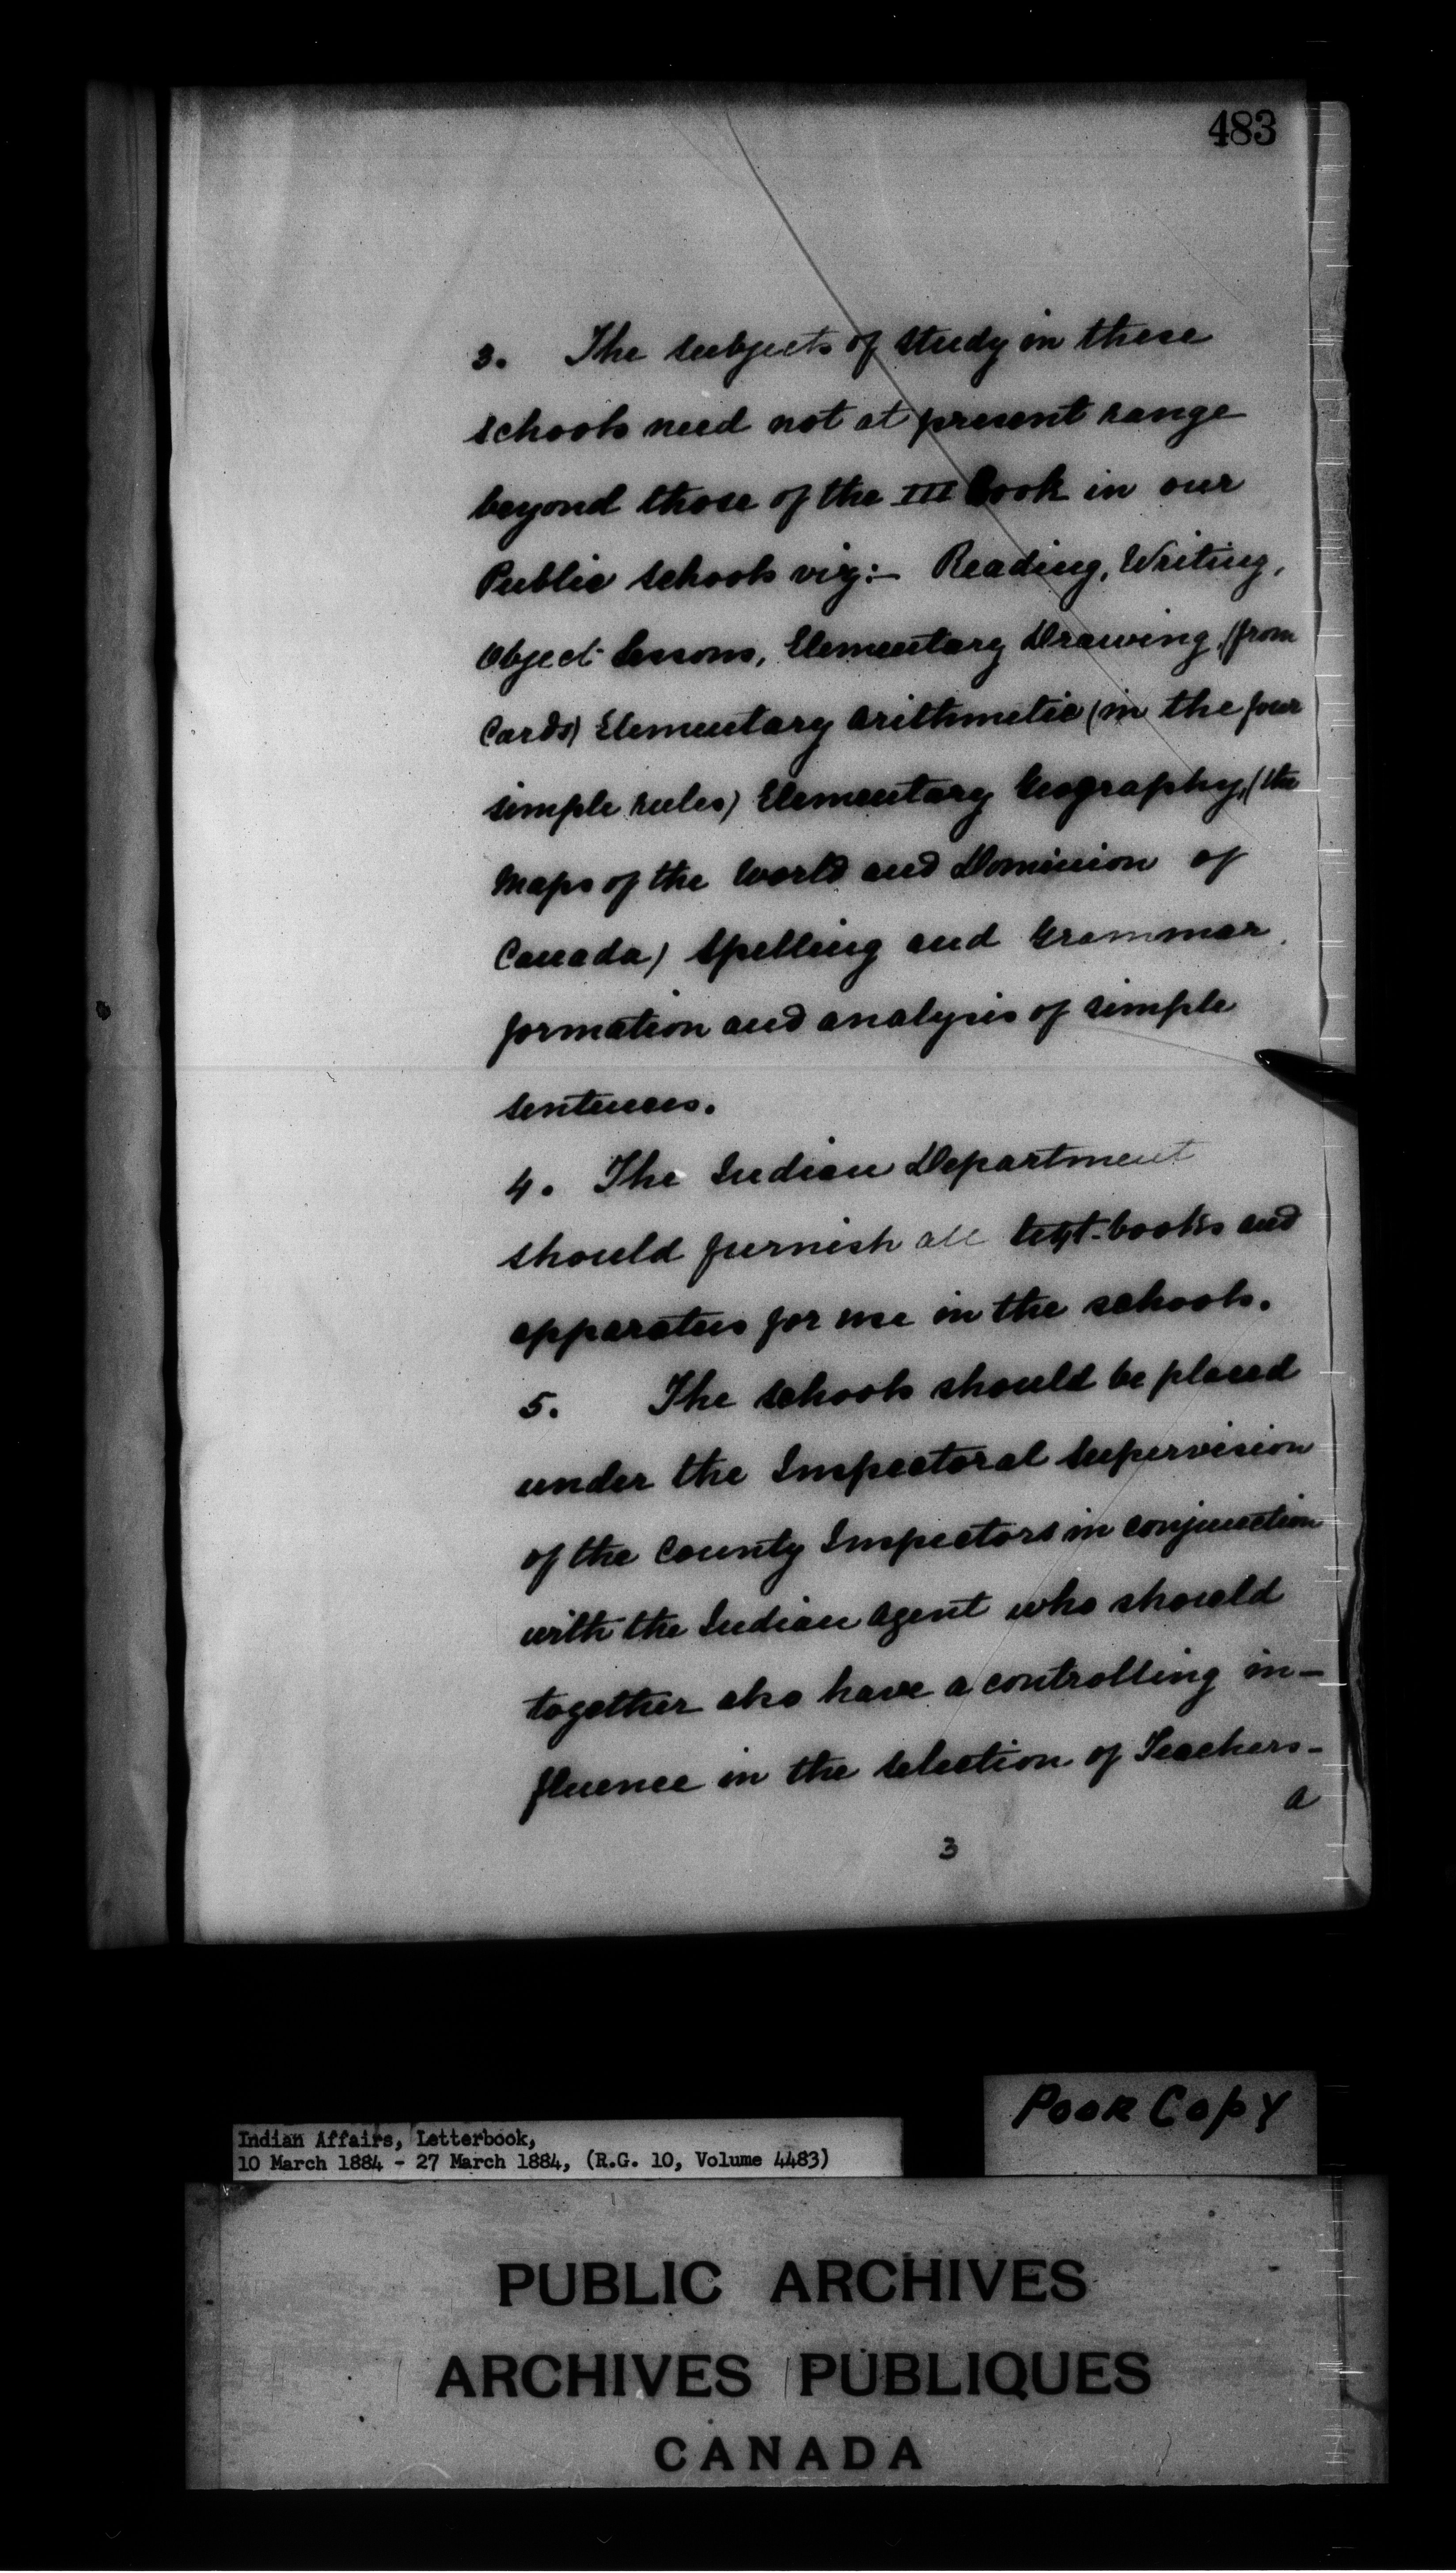 483
3. The subjects of study in these
schools need not at present range
beyond those of the III Book in our
Public schools viz:- Reading, Writing,
Object Lessons, Elementary Drawing, (from
Cards) Elementary Arithmetic (in the four
simple rules) Elementary Geography, (the
Maps of the World and Dominion of
Canada) Spelling and Grammar,
formation and analysis of simple
sentences.
4. The Indian Department
should furnish all text-books and
apparatus for use in the schools.
5. The schools should be placed
under the Inspectoral Supervision
of the County Inspectors in conjunction
with the Indian Agent who should
together also have a controlling in-
fluence in the selection of Teachers-
a
3
Poor Copy
Indian Affairs, Letterbook,
10 March 1884 - 27 March 1884, (R.G. 10, Volume 4483)
PUBLIC ARCHIVES
ARCHIVES PUBLIQUES
CANADA